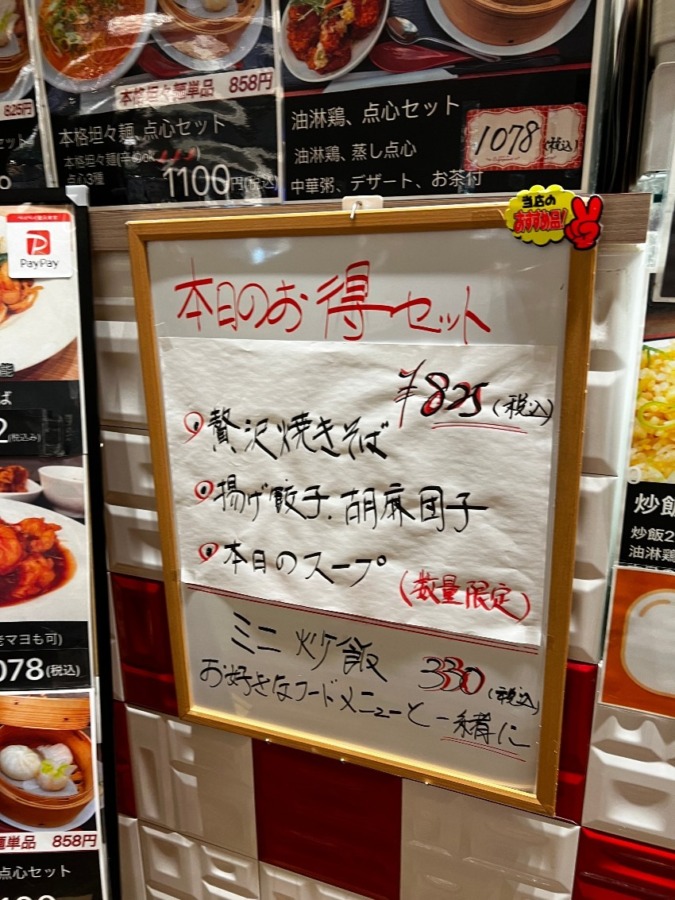 825円
本格坦々麺単品 858円
本格坦々麺、点心セット
本格坦々麺
点心3種
1100円(税込)
油淋鶏、点心セット
1078(税込)
油淋鶏、蒸し点心
中華粥、デザート、お茶付
PayPay
当店の
おすすめ品!
本日のお得セット
¥825(税込)
贅沢焼きそば
揚げ餃子、胡麻団子
本日のスープ
(数量限定)
ミニ炒飯 330(税込)
お好きなフードメニューと一緒に
ば
2(税込み)
マヨも可)
078(税込)
麺単品 858円
点心セット
炒飯
炒飯2
油淋鶏